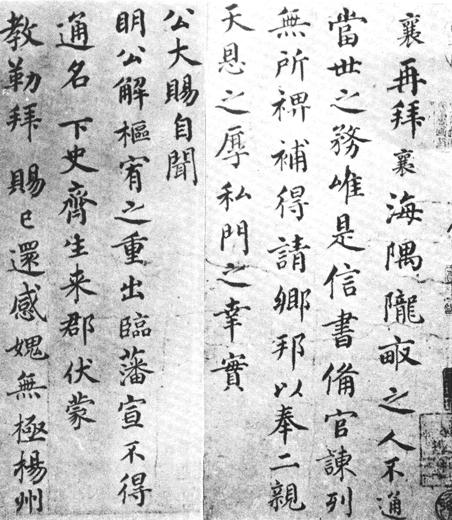 襄再拜襄海隅隴畝之人不通
當世之務唯是信書備官諫列
無所裨補得請鄉邦以奉二親
天恩之厚私門之幸實
公大賜自聞
明公解樞宥之重出臨藩宣不得
通名下史齊生来郡伏蒙
教勒拜賜已還感媿無極楊州